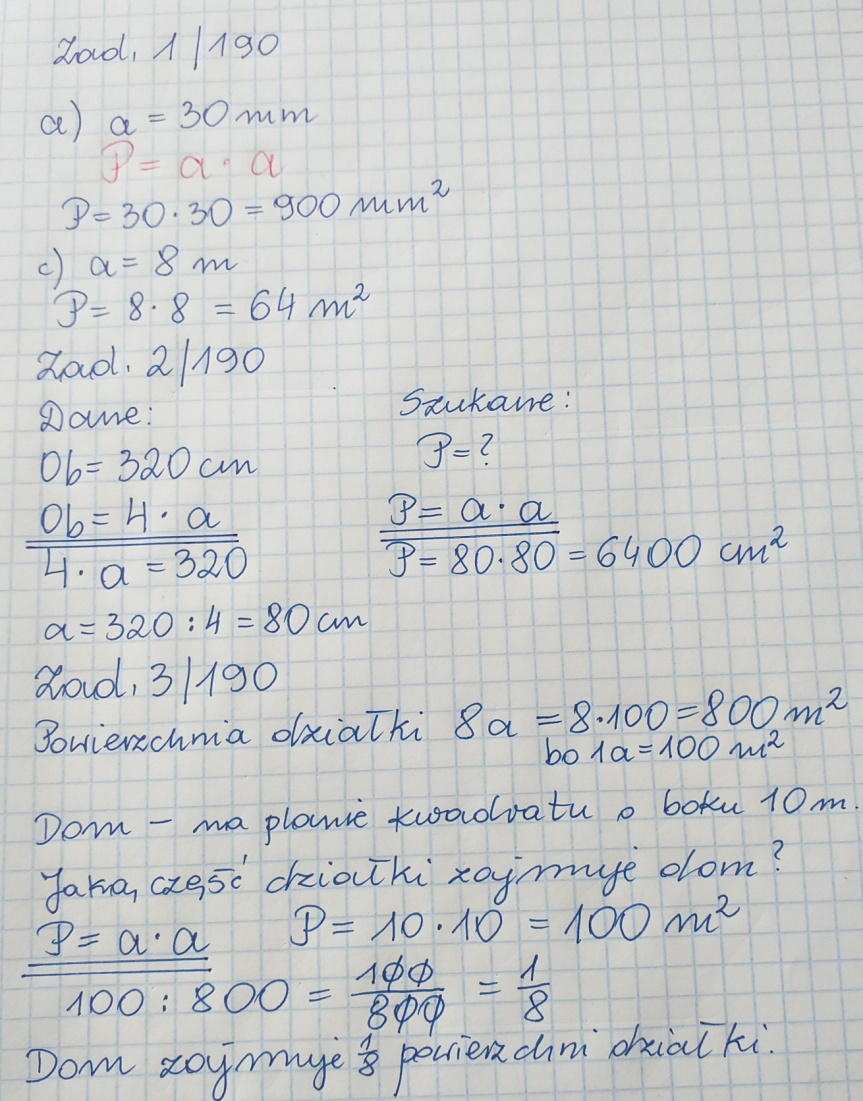 Zad. 1/190
a) a = 30 mm
P = a · a
P = 30 · 30 = 900 mm²
c) a = 8 m
P = 8 · 8 = 64 m²
Zad. 2/190
Dane:
Szukane:
Ob = 320 cm
P = ?
Ob = 4 · a
P = a · a
4 · a = 320
P = 80 · 80 = 6400 cm²
a = 320 : 4 = 80 cm
Zad. 3/190
Powierzchnia działki 8a = 8 · 100 = 800 m²
bo 1a = 100 m²
Dom – na planie kwadratu o boku 10 m.
Jaką część działki zajmuje dom?
P = a · a P = 10 · 10 = 100 m²
100 : 800 = 100/800 = 1/8
Dom zajmuje 1/8 powierzchni działki.